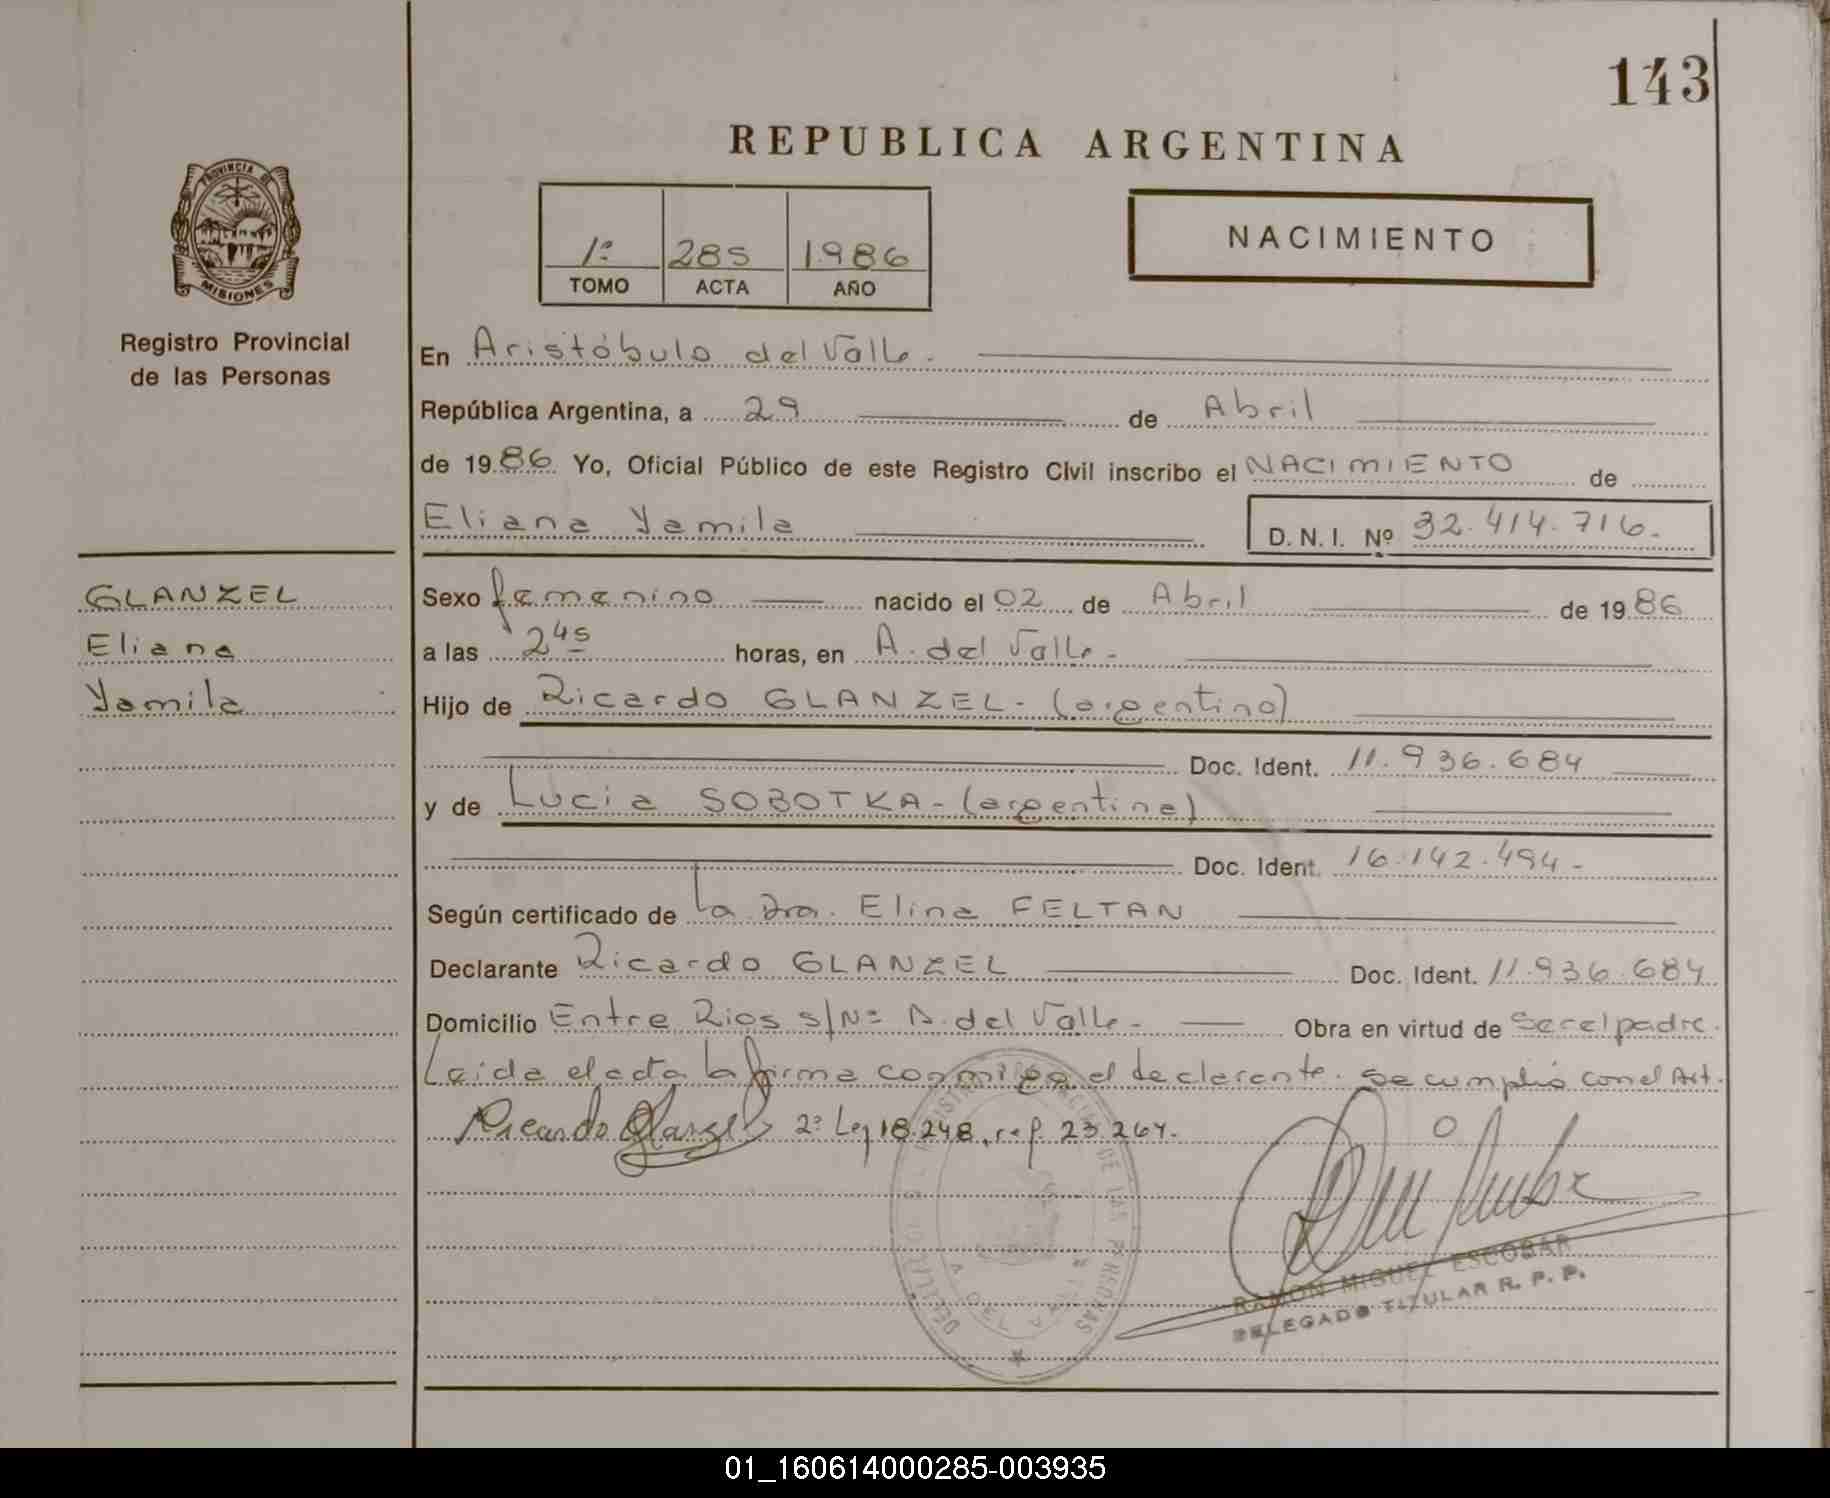 143
REPUBLICA ARGENTINA
PROVINCIA DE
MISIONES
Registro Provincial
de las Personas
1º 285 1986
TOMO ACTA AÑO
NACIMIENTO
En Aristóbulo del Valle.
República Argentina, a 29 de Abril
de 1986 Yo, Oficial Público de este Registro Civil inscribo el NACIMIENTO de
Eliana Yamila D.N.I. Nº 32.414.716.
GLANZEL
Eliana
Yamila
Sexo femenino nacido el 02 de Abril de 1986
a las 2 45 horas, en A. del Valle.
Hijo de Ricardo GLANZEL - (argentino)
Doc. Ident. 11.936.684
y de Lucia SOBOTKA - (argentina)
Doc. Ident. 16.142.494 -
Según certificado de la Dra. Elina FELTAN
Declarante Ricardo GLANZEL Doc. Ident. 11.936.684
Domicilio Entre Rios s/Nº A. del Valle - Obra en virtud de ser el padre.
Leida el acta la firma conmigo el declarante. Se cumplió con el Art.
Ricardo Glanzel 2º Ley 18.248, ref. 23.264.
RAMON MIGUEL ESCOBAR
DELEGADO TITULAR R. P. P.
01_160614000285-003935